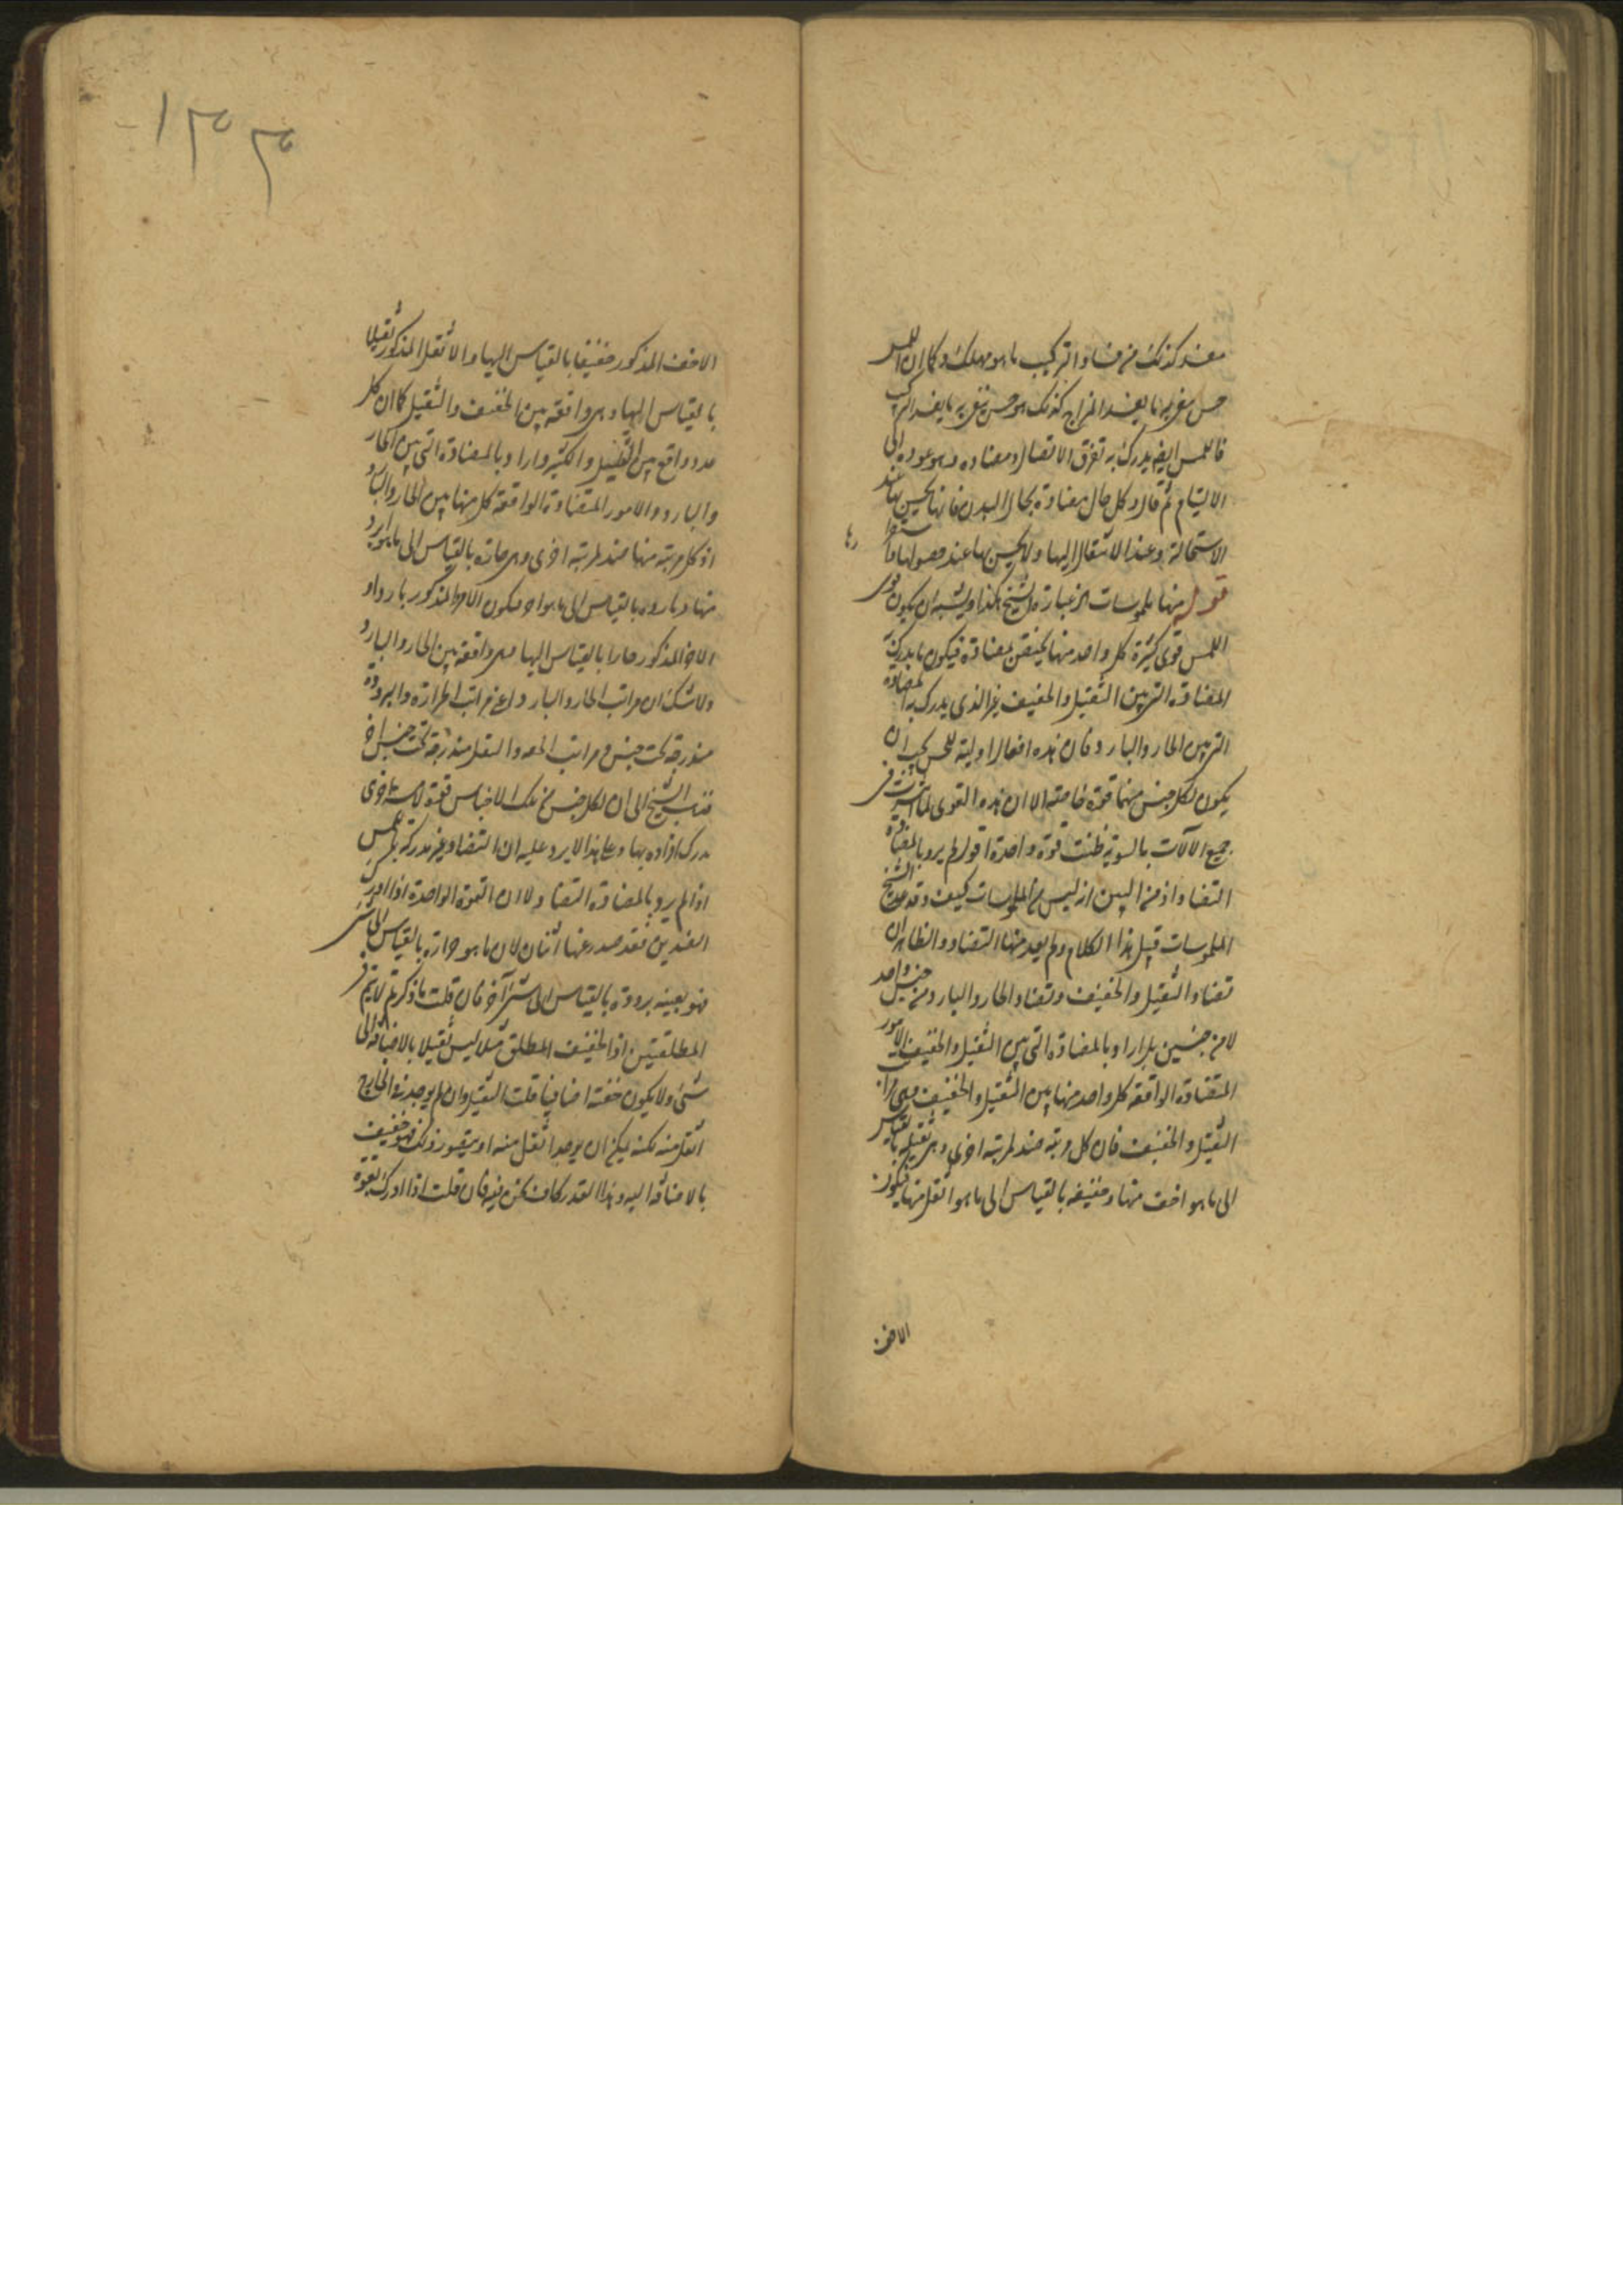 مفسد كذلك من فساد التركيب ما هو مهلك و كما ان اللمس
حس يتقى به ما يفسد المزاج كذلك هو حس يتقى به ما يفسد التركيب
فاللمس ايضا يدرك به تفرق الاتصال و مضاده و هو عوده الى
الالتيام ثم قال و كل حال مضادة بحال البدن فانها يحس بها عند
الاستحالة و عند الانتقال اليها و لا يحس بها عند حصولها و استقرارها
قوله منها ملموسات الخ عبارة الشيخ هكذا و يشبه ان يكون قوى
اللمس قوى كثيرة كل واحد منها يختص بمضادة فيكون ما يدرك به
المضادة التى بين الثقيل و الخفيف غير الذى يدرك به المضادة
التى بين الحار و البارد فان هذه افعال اولية للحس يجب ان
يكون لكل جنس منها قوة خاصة الا ان هذه القوى لما انتشرت فى
جميع الآلات بالسوية ظنت قوة واحدة اقول لم يرد بالمضادة
التضاد اذ من البين انه ليس من الملموسات كيف و قد عد الشيخ
الملموسات قبيل هذا الكلام و لم يعد منها التضاد و الظاهر ان
تضاد الثقيل و الخفيف و تضاد الحار و البارد من جنس واحد
لا من جنسين بل اراد بالمضادة التى بين الثقيل و الخفيف الامور
المتضادة الواقعة كل واحد منها بين الثقيل و الخفيف و هى مراتب
الثقيل و الخفيف فان كل مرتبة ضد لمرتبة اخرى و هى ثقيلة بالقياس
الى ما هو اخف منها و خفيفة بالقياس الى ما هو اثقل منها فيكون
الاخف
١٣٣
الاخف المذكور خفيفا بالقياس اليها و الاثقل المذكور ثقيلا
بالقياس اليها و هى واقعة بين الخفيف و الثقيل كما ان كل
عدد واقع بين القليل و الكثير و اراد بالمضادة التى بين الحار
و البارد الامور المتضادة الواقعة كل منها بين الحار و البارد
اذ كل مرتبة منها ضد لمرتبة اخرى و هى حارة بالقياس الى ما هو ابرد
منها و باردة بالقياس الى ما هو احر فيكون الاحر المذكور باردا و
الابرد المذكور حارا بالقياس اليها فهى واقعة بين الحار و البارد
و لا شك ان مراتب الحار و البارد اعنى مراتب الحرارة و البرودة
مندرجة تحت جنس و مراتب الخفة و الثقل مندرجة تحت جنس آخر
فذهب الشيخ الى ان لكل جنس من تلك الاجناس قوة لامسة اخرى
يدرك افراده بها و على هذا لا يرد عليه ان التضاد غير مدركة باللمس
اذ لم يرد بالمضادة التضاد و لا ان القوة الواحدة اذا ادركت
الضدين فقد صدر عنها اثنان لان ما هو حرارة بالقياس الى شىء
فهو بعينه برودة بالقياس الى شىء آخر فان قلت ما ذكرتم لا يتم فى
المطلقين اذ الخفيف المطلق مثلا ليس ثقيلا بالاضافة الى
شىء و لا يكون خفته اضافيا قلت الثقيل و ان لم يوجد فى الخارج
اثقل منه لكنه يمكن ان يوجد اثقل منه او يتصور ذلك فهو خفيف
بالاضافة اليه و هذا القدر كاف لكن فيه فان قلت اذا ادرك بقوة